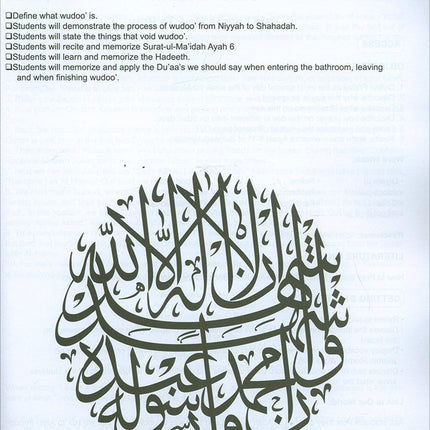 ❑Define what wudoo' is.
❑Students will demonstrate the process of wudoo' from Niyyah to Shahadah.
❑Students will state the things that void wudoo'.
❑Students will recite and memorize Surat-ul-Ma'idah Ayah 6
❑Students will learn and memorize the Hadeeth.
❑Students will memorize and apply the Du'aa's we should say when entering the bathroom, leaving
and when finishing wudoo'.
أشهد أن لا إله إلا الله
وأشهد أن محمدا
عبده ورسوله